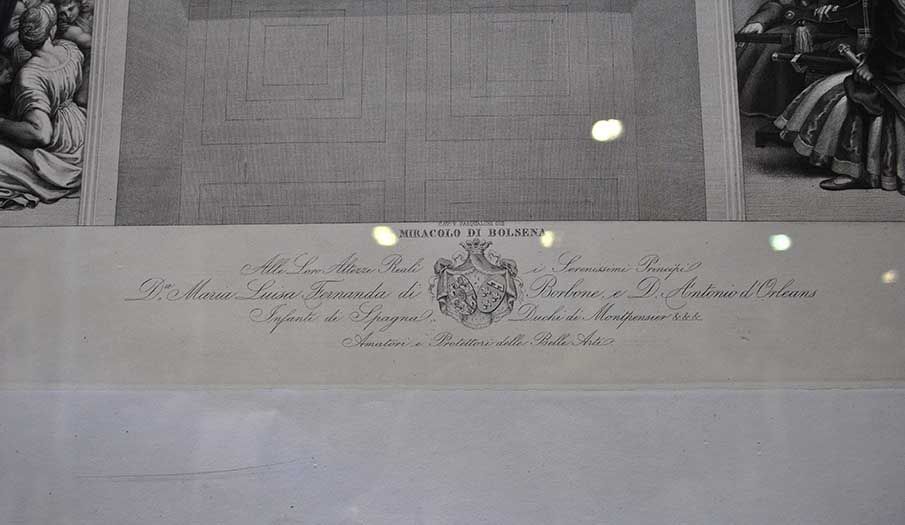 MIRACOLO DI BOLSENA
Alle Loro Altezze Reali i Serenissimi Principi
D.ª Maria Luisa Fernanda di Borbone, e D. Antonio d'Orleans
Infanti di Spagna, Duchi di Montpensier &&&
Amatori e Protettori delle Belle Arti